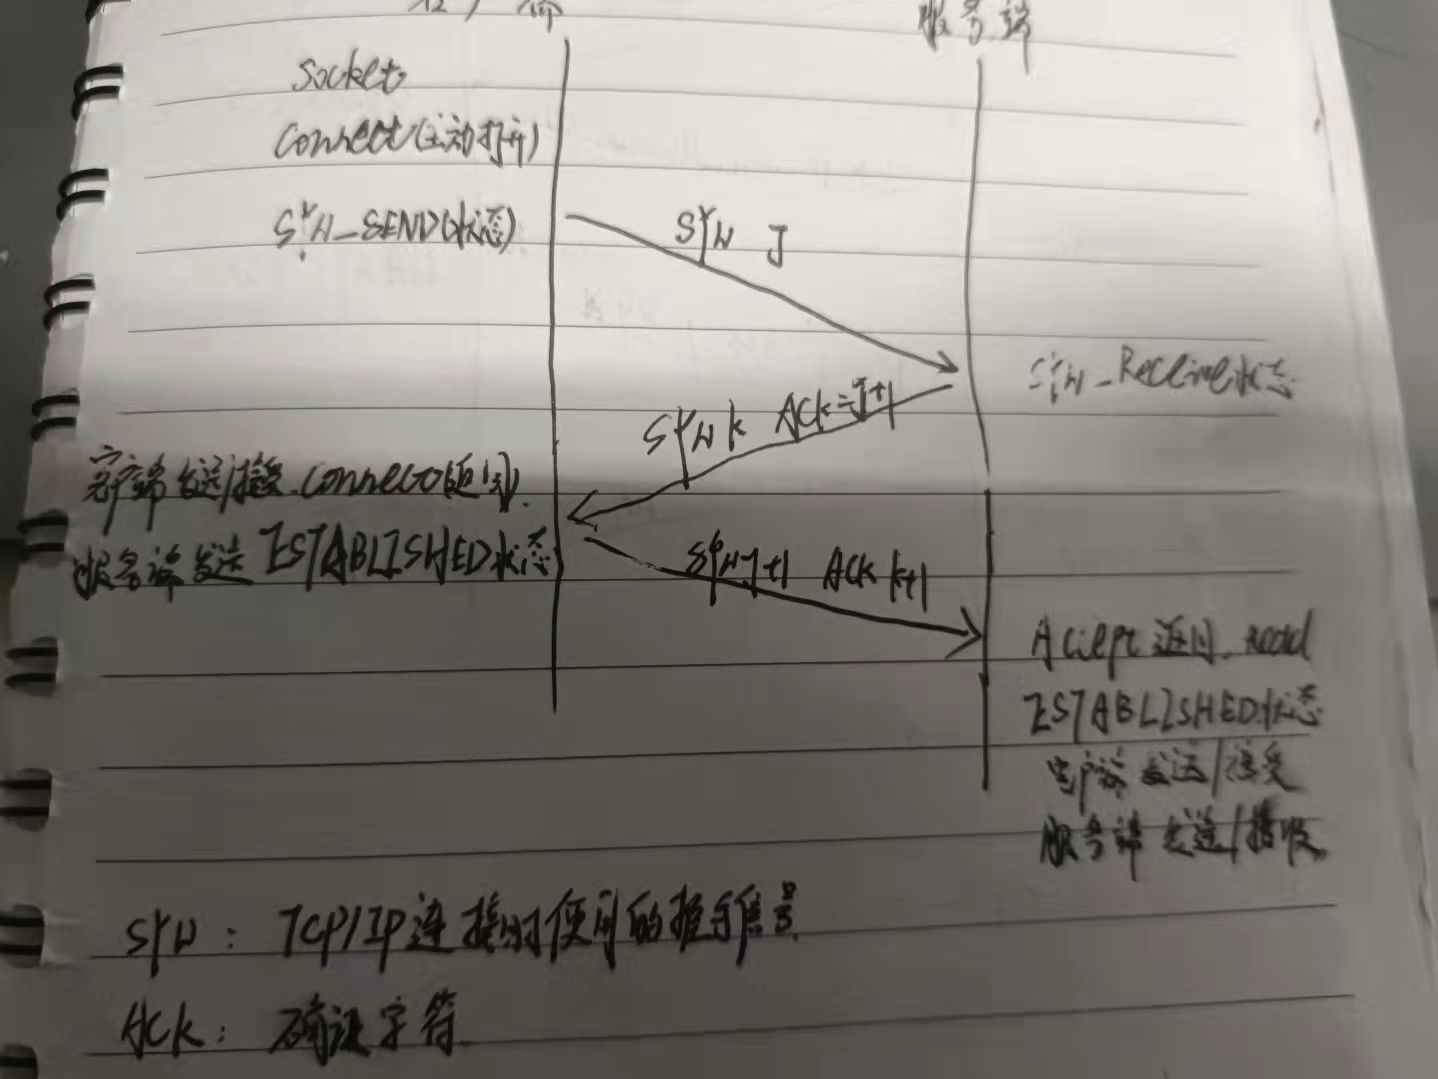 服务端
Socket
Connect(主动打开)
SYN_SEND(状态)
SYN J
SYN_Receive状态
SYN k ACK=J+1
客户端 发送/接受 connect返回
服务端发送 ESTABLISHED状态
SYN J+1 ACK k+1
Accept 返回 read
ESTABLISHED状态
客户端 发送/接受
服务端 发送/接收
SYN: TCP/IP连接时使用的握手信号
ACK: 确认字符